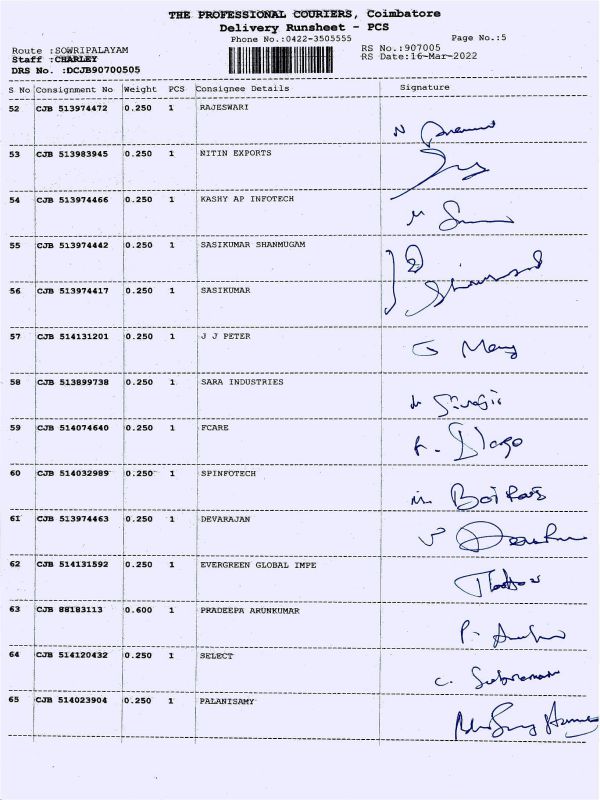 THE PROFESSIONAL COURIERS, Coimbatore
Delivery Runsheet - PCS
Phone No.:0422-3505555
Page No.:5
Route :SOWRIPALAYAM
RS No.:907005
Staff :CHARLEY
RS Date:16-Mar-2022
DRS No. :DCJB90700505
S No Consignment No Weight PCS Consignee Details Signature
52 CJB 513974472 0.250 1 RAJESWARI
53 CJB 513983945 0.250 1 NITIN EXPORTS
54 CJB 513974466 0.250 1 KASHY AP INFOTECH
55 CJB 513974442 0.250 1 SASIKUMAR SHANMUGAM
56 CJB 513974417 0.250 1 SASIKUMAR
57 CJB 514131201 0.250 1 J J PETER
58 CJB 513899738 0.250 1 SARA INDUSTRIES
59 CJB 514074640 0.250 1 FCARE
60 CJB 514032989 0.250 1 SPINFOTECH
61 CJB 513974463 0.250 1 DEVARAJAN
62 CJB 514131592 0.250 1 EVERGREEN GLOBAL IMPE
63 CJB 88183113 0.600 1 PRADEEPA ARUNKUMAR
64 CJB 514120432 0.250 1 SELECT
65 CJB 514023904 0.250 1 PALANISAMY